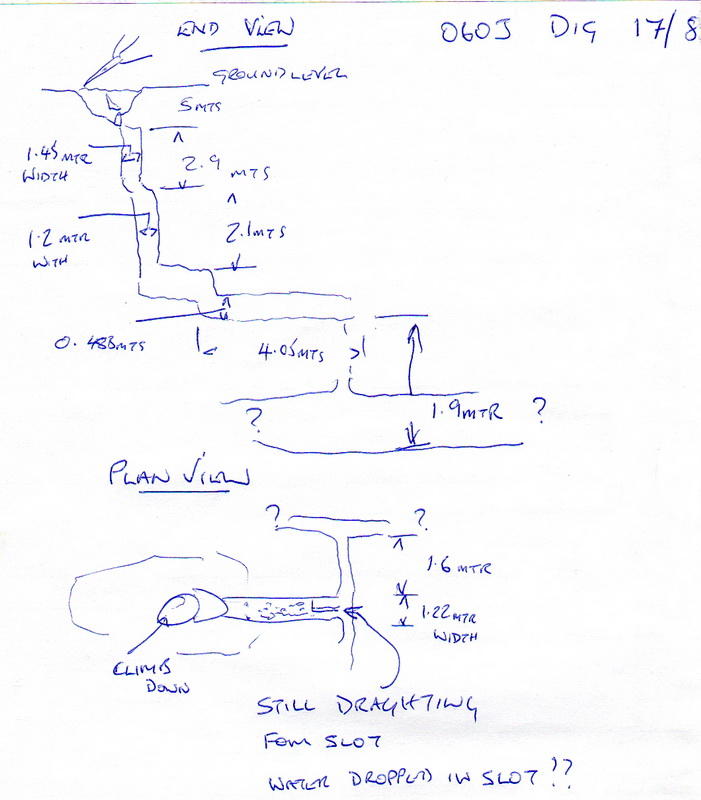 END VIEW
060J DIG 17/8
GROUND LEVEL
5 MTS
1.45 MTR
WIDTH
2.9 MTS
1.2 MTR
WITH
2.1 MTS
0.488 MTS
4.05 MTS
1.9 MTR ?
?
PLAN VIEW
? ?
1.6 MTR
1.22 MTR
WIDTH
CLIMB
DOWN
STILL DRAGHTING
FOM SLOT
WATER DROPPED IN SLOT !?